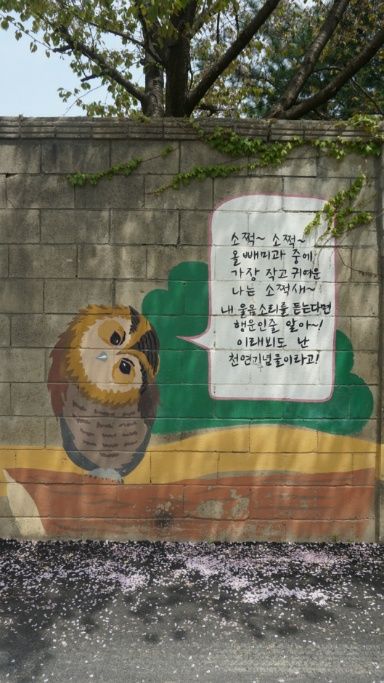 소쩍~ 소쩍~
올빼미과 중에
가장 작고 귀여운
나는 소쩍새~
내 울음소리를 듣는다면
행운인줄 알아~!
이래뵈도 난
천연기념물이라고!